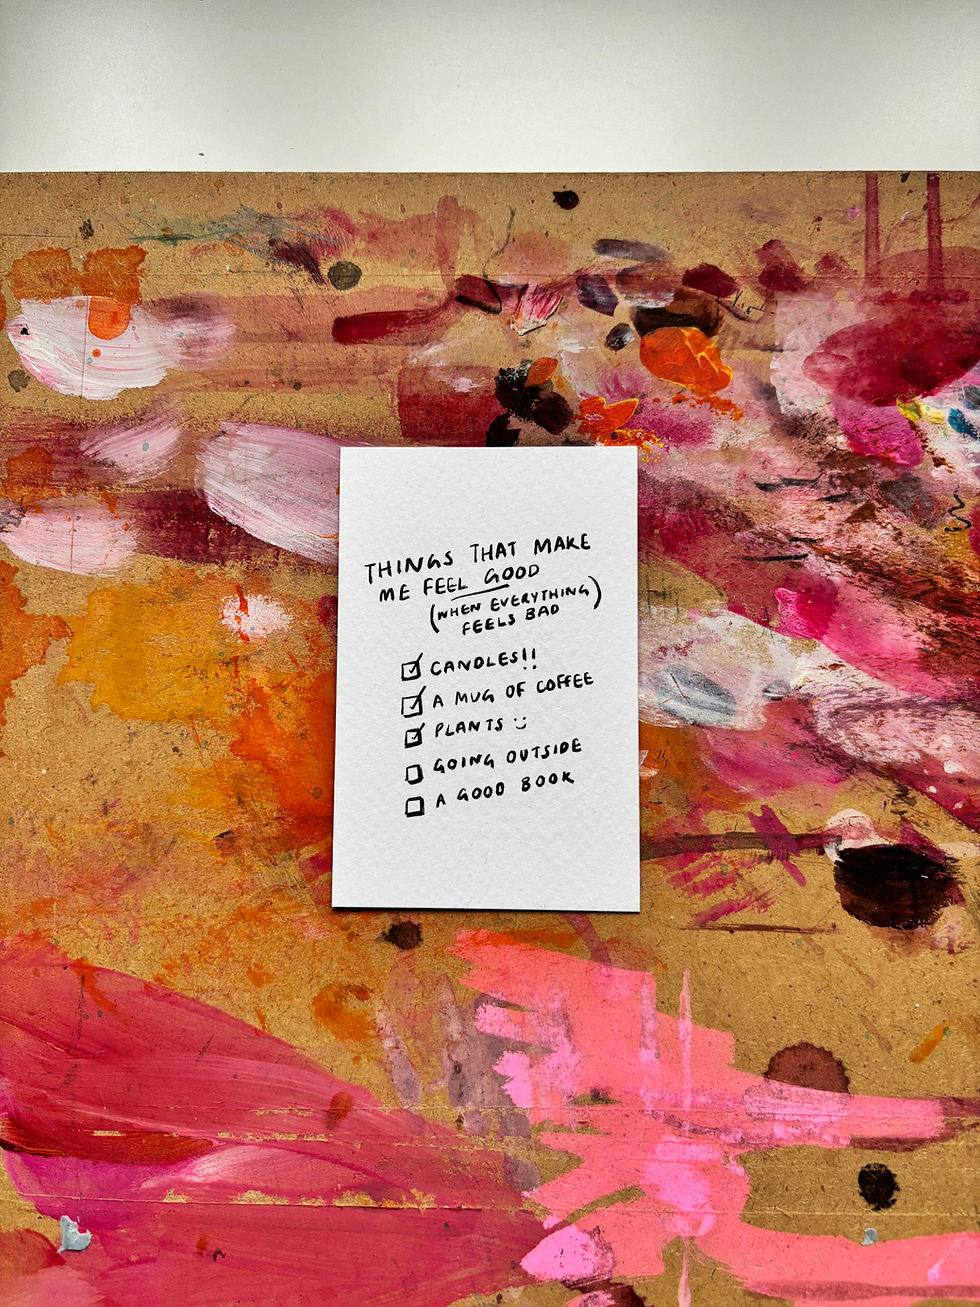 THINGS THAT MAKE
ME FEEL GOOD
(WHEN EVERYTHING)
FEELS BAD
☑ CANDLES!!
☑ A MUG OF COFFEE
☑ PLANTS :)
☐ GOING OUTSIDE
☐ A GOOD BOOK